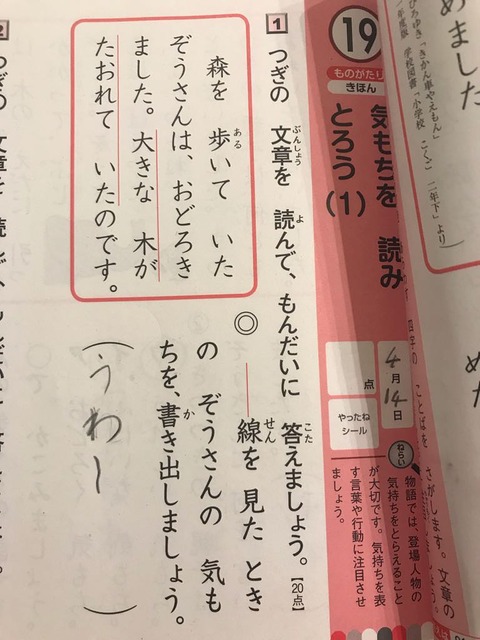 めました
ひろゆき「きかん車やえもん」
学校図書「小学校 こくご 二年下」より)
19
ものがたり
きほん
気もちを 読み
とろう(1)
4月14日
点
やったね
シール
ねらい
物語では、登場人物の
気持ちをとらえること
が大切です。気持ちを表
す言葉や行動に注目させ
ましょう。
1 つぎの 文章を 読んで、もんだいに 答えましょう。【20点】
ぶんしょう
よ
こた
森を 歩いて いた
ある
ぞうさんは、おどろき
ました。大きな 木が
たおれて いたのです。
◎ ――線を 見た とき
せん
の ぞうさんの 気も
ちを、書き出しましょう。
か
(うわー)
2 つぎの 文章を